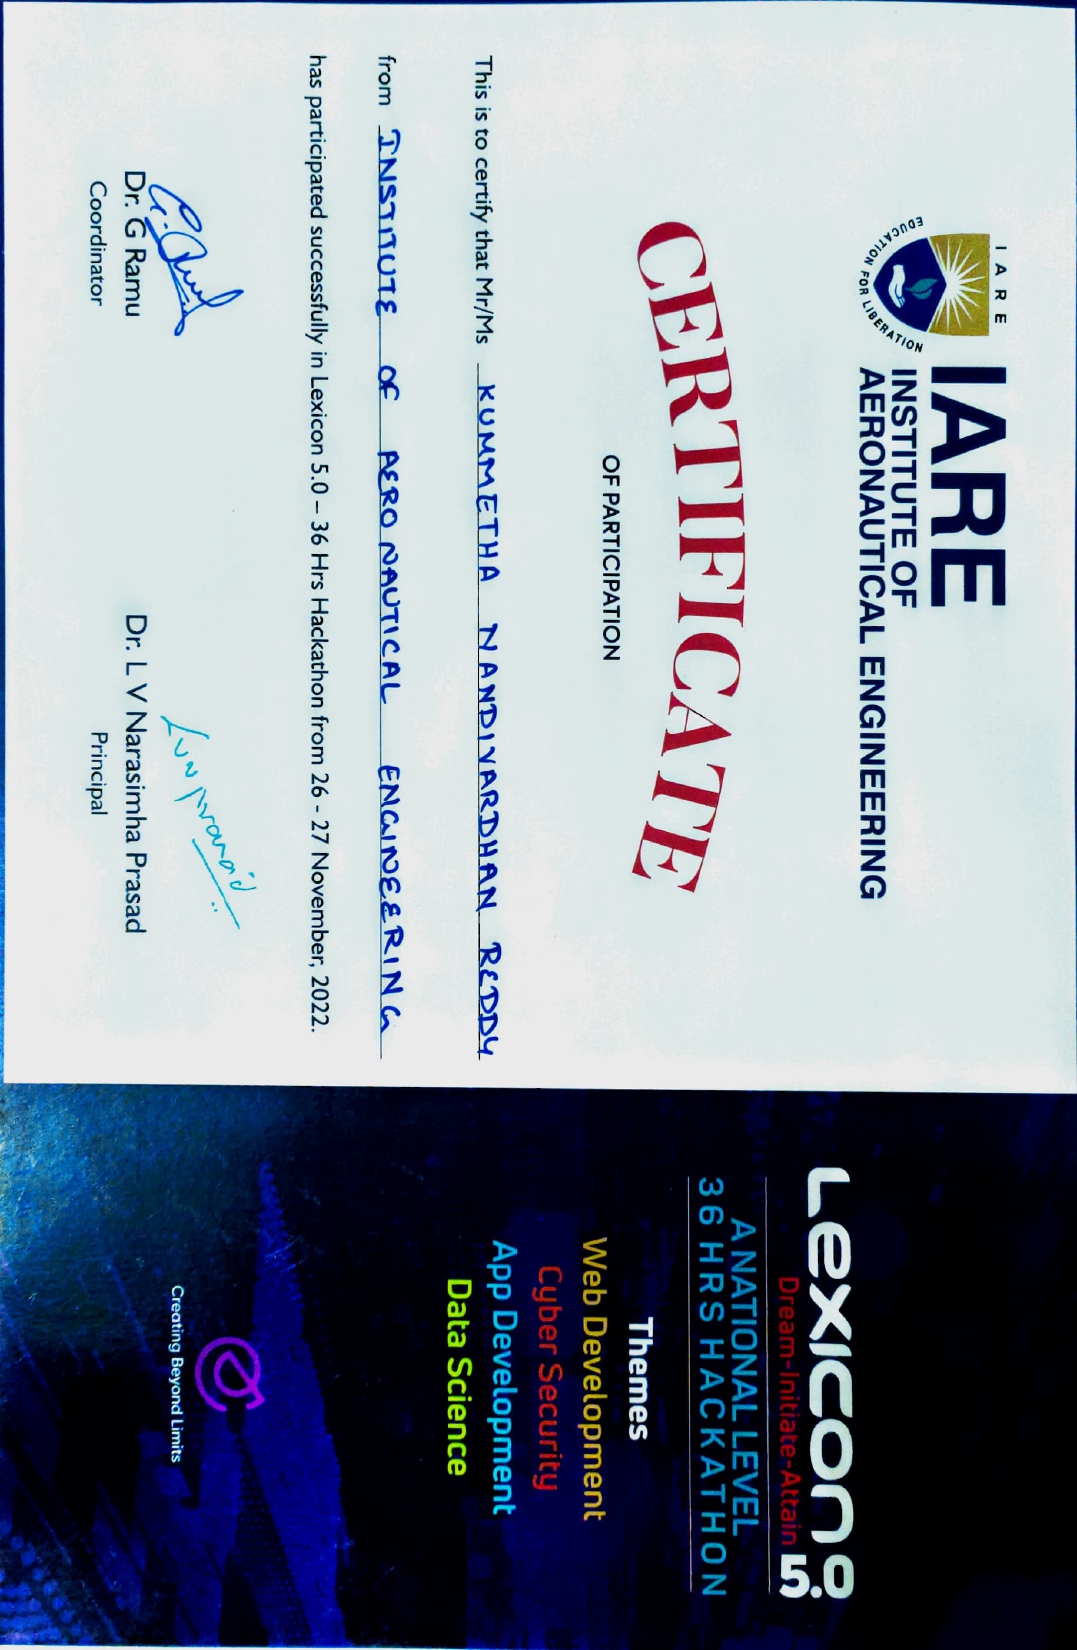 IARE
EDUCATION FOR LIBERATION
IARE
INSTITUTE OF
AERONAUTICAL ENGINEERING
CERTIFICATE
OF PARTICIPATION
This is to certify that Mr/Ms KUMMETHA NANDIVARDHAN REDDY
from INSTITUTE OF AERONAUTICAL ENGINEERING
has participated successfully in Lexicon 5.0 – 36 Hrs Hackathon from 26 - 27 November, 2022.
G. Ramu
Dr. G Ramu
Coordinator
Dr. L V Narasimha Prasad
Principal
Lexicon 5.0
Dream-Initiate-Attain
A NATIONAL LEVEL
36 HRS HACKATHON
Themes
Web Development
Cyber Security
App Development
Data Science
Creating Beyond Limits